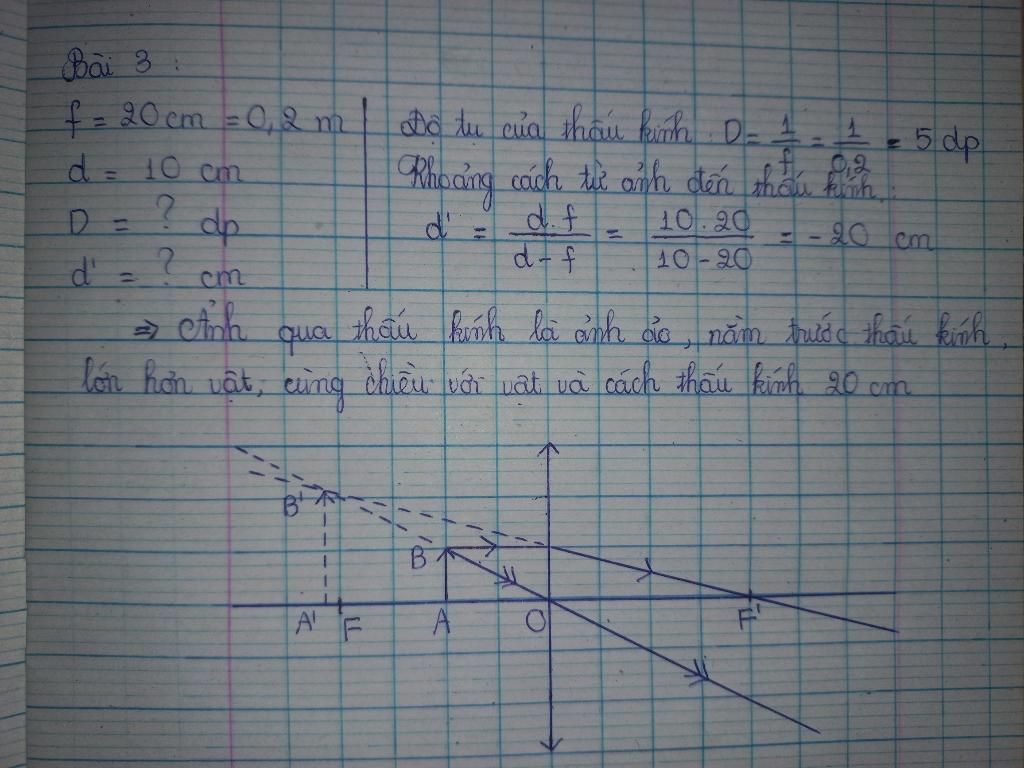 Bài 3 :
f = 20 cm = 0,2 m
d = 10 cm
D = ? dp
d' = ? cm
Độ tụ của thấu kính D = 1/f = 1/0,2 = 5 dp
Khoảng cách từ ảnh đến thấu kính :
d' = d.f / d - f = 10.20 / 10 - 20 = - 20 cm
=> Ảnh qua thấu kính là ảnh ảo, nằm trước thấu kính,
lớn hơn vật, cùng chiều với vật và cách thấu kính 20 cm
B'
B
A' F A O F'